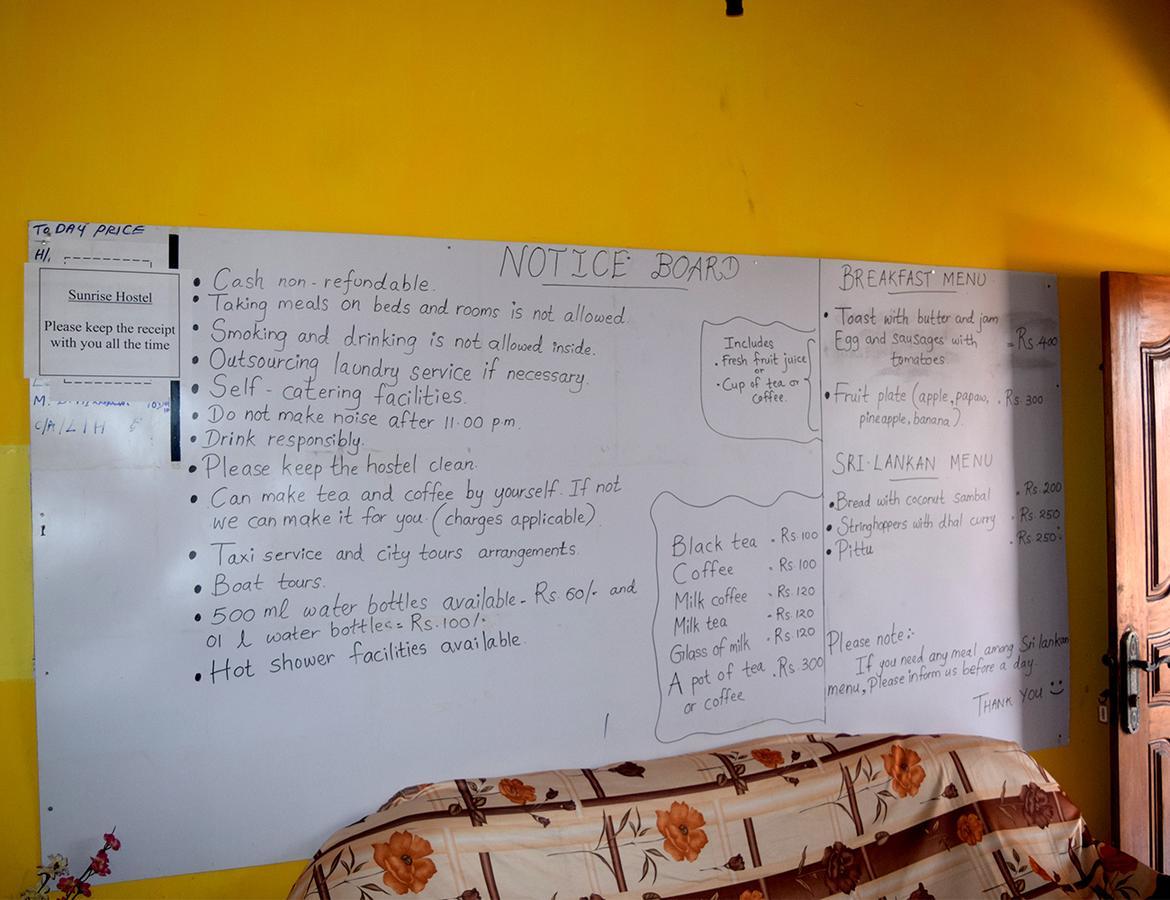 TODAY PRICE
H/.
Sunrise Hostel
Please keep the receipt
with you all the time
M.
C/A/LTH
NOTICE BOARD
• Cash non-refundable.
• Taking meals on beds and rooms is not allowed.
• Smoking and drinking is not allowed inside.
• Outsourcing laundry service if necessary.
• Self-catering facilities.
• Do not make noise after 11.00 p.m.
• Drink responsibly.
• Please keep the hostel clean.
• Can make tea and coffee by yourself. If not
we can make it for you. (charges applicable)
• Taxi service and city tours arrangements.
• Boat tours.
• 500 ml water bottles available - Rs. 60/- and
01 l water bottles = Rs. 100/-
• Hot shower facilities available.
Includes
• Fresh fruit juice
or
• Cup of tea or
coffee.
Black tea - Rs. 100
Coffee - Rs. 100
Milk coffee - Rs. 120
Milk tea - Rs. 120
Glass of milk - Rs. 120
A pot of tea - Rs. 300
or coffee
BREAKFAST MENU
• Toast with butter and jam
Egg and sausages with = Rs. 400
tomatoes
• Fruit plate (apple, papaw, - Rs. 300
pineapple, banana).
SRI-LANKAN MENU
• Bread with coconut sambal - Rs. 200
• Stringhoppers with dhal curry - Rs. 250
• Pittu - Rs. 250
Please note:-
If you need any meal among Sri lankan
menu, Please inform us before a day.
THANK YOU